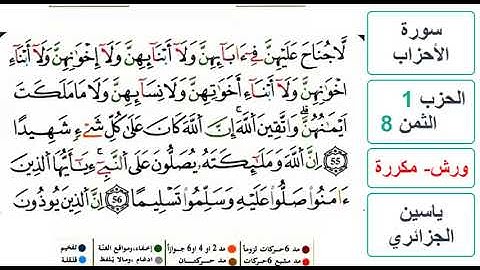 سورة
الأحزاب
الحزب 1
الثمن 8
ورش- مكررة
ياسين
الجزائري
لَّا جُنَاحَ عَلَيْهِنَّ فِےٓ ءَابَآئِهِنَّ وَلَآ أَبْنَآئِهِنَّ وَلَآ إِخْوَٰنِهِنَّ وَلَآ أَبْنَآءِ
اِخْوَٰنِهِنَّ وَلَآ أَبْنَآءِ أَخَوَٰتِهِنَّ وَلَا نِسَآئِهِنَّ وَلَا مَا مَلَكَتَ
اَيْمَٰنُهُنَّۖ وَاتَّقِينَ اَللَّهَۖ إِنَّ اَللَّهَ كَانَ عَلَىٰ كُلِّ شَےْءٖ شَهِيداً
55 إِنَّ اَللَّهَ وَمَلَٰٓئِكَتَهُۥ يُصَلُّونَ عَلَى اَلنَّبِےٓءِۖ يَٰٓأَيُّهَا اَلذِينَ
ءَامَنُواْ صَلُّواْ عَلَيْهِ وَسَلِّمُواْ تَسْلِيماًۖ 56 إِنَّ اَلذِينَ يُوذُونَ
مد 6 حركات لزوماً مد 2 أو 4 او 6 جوازاً إخفاء، ومواقع الغنّة تفخيم
مد مشبع 6 حركات مد حركتان ادغام، ومالا يلفظ قلقلة